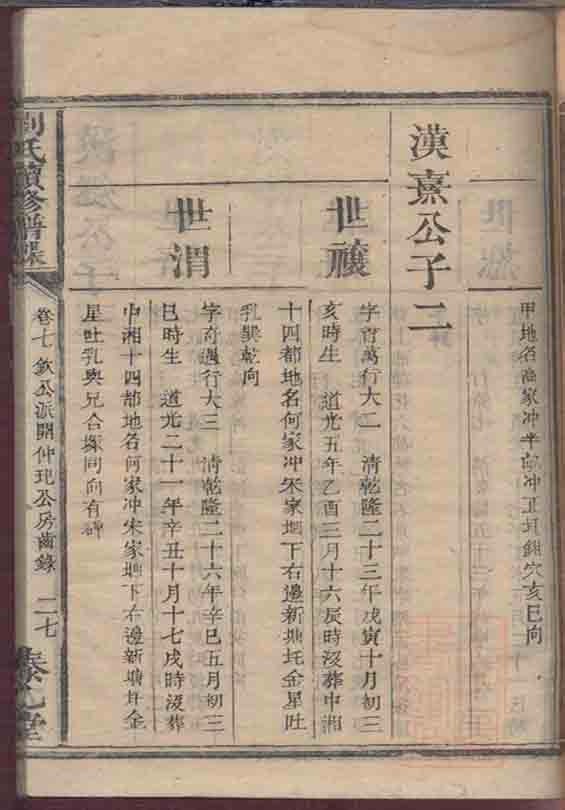 甲地名高家冲半衝冲正玨鉗穴亥巳向
漢熹公子二
世禳
字會萬行大二 清乾隆二十三年戊寅十月初三
亥時生 道光五年乙酉三月十六辰時沒葬中湘
十四都地名何家冲宋家塘下右邊新塘圫金星吐
乳巽乾向
世渭
字奇遇行大三 清乾隆二十六年辛巳五月初三
巳時生 道光二十一年辛丑十月十七戌時沒葬
中湘十四都地名何家冲宋家塘下右邊新塘圫金
星吐乳與兄合塚同向有碑
劉氏續修譜牒
卷七 欽公派開仲玘公房齒錄 二七